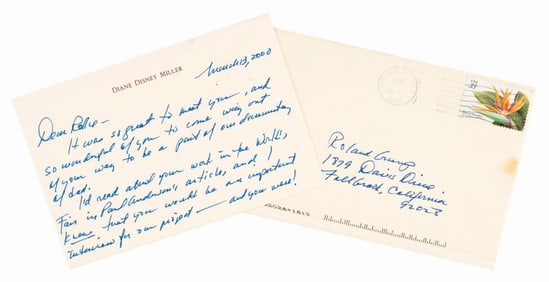 DIANE DISNEY MILLER
March 13, 2000
Dear Rollie —
It was so great to meet you, and
so wonderful of you to come way out
of your way to be a part of our documentary
of dad.
I'd read about your work in the World's
Fair in Paul Anderson's articles, and I
knew that you would be an important
interview for our project — and you were!
Roland Crump
1879 Davis Drive
Fallbrook, California
92028